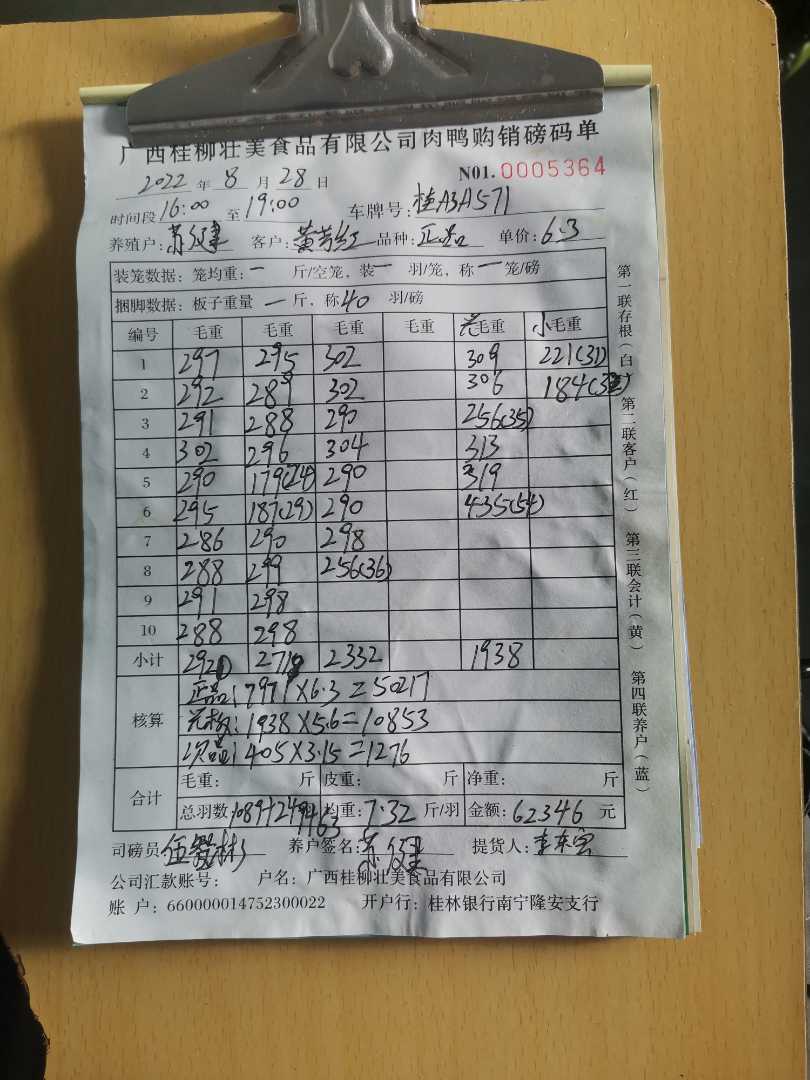 广西桂柳壮美食品有限公司肉鸭购销磅码单
2022 年 8 月 28 日 N01. 0005364
时间段 16:00 至 19:00 车牌号: 桂A3A571
养殖户: 苏健 客户: 黄芳红 品种: 正品 单价: 6.3
装笼数据: 笼均重: 一 斤/空笼, 装 一 羽/笼, 称 一 笼/磅
捆脚数据: 板子重量 一 斤, 称 40 羽/磅
编号 毛重 毛重 毛重 毛重 毛重 小毛重
1 297 295 302 309 221(31)
2 292 289 302 306 184(32)
3 291 288 290 256(35)
4 302 296 304 313
5 290 179(24) 290 319
6 295 187(29) 290 435(54)
7 286 290 298
8 288 299 256(36)
9 291 298
10 288 298
小计 2920 2719 2332 1938
核算
正品: 7971×6.3=50217
1938×5.6=10853
次品: 405×3.15=1276
合计
毛重: 斤 皮重: 斤 净重: 斤
总羽数: 均重: 7.32 斤/羽 金额: 62346 元
司磅员 养户签名: 苏健 提货人:
公司汇款账号: 户名: 广西桂柳壮美食品有限公司
账 户: 660000014752300022 开户行: 桂林银行南宁隆安支行
第一联存根(白) 第二联客户(红) 第三联会计(黄) 第四联养户(蓝)